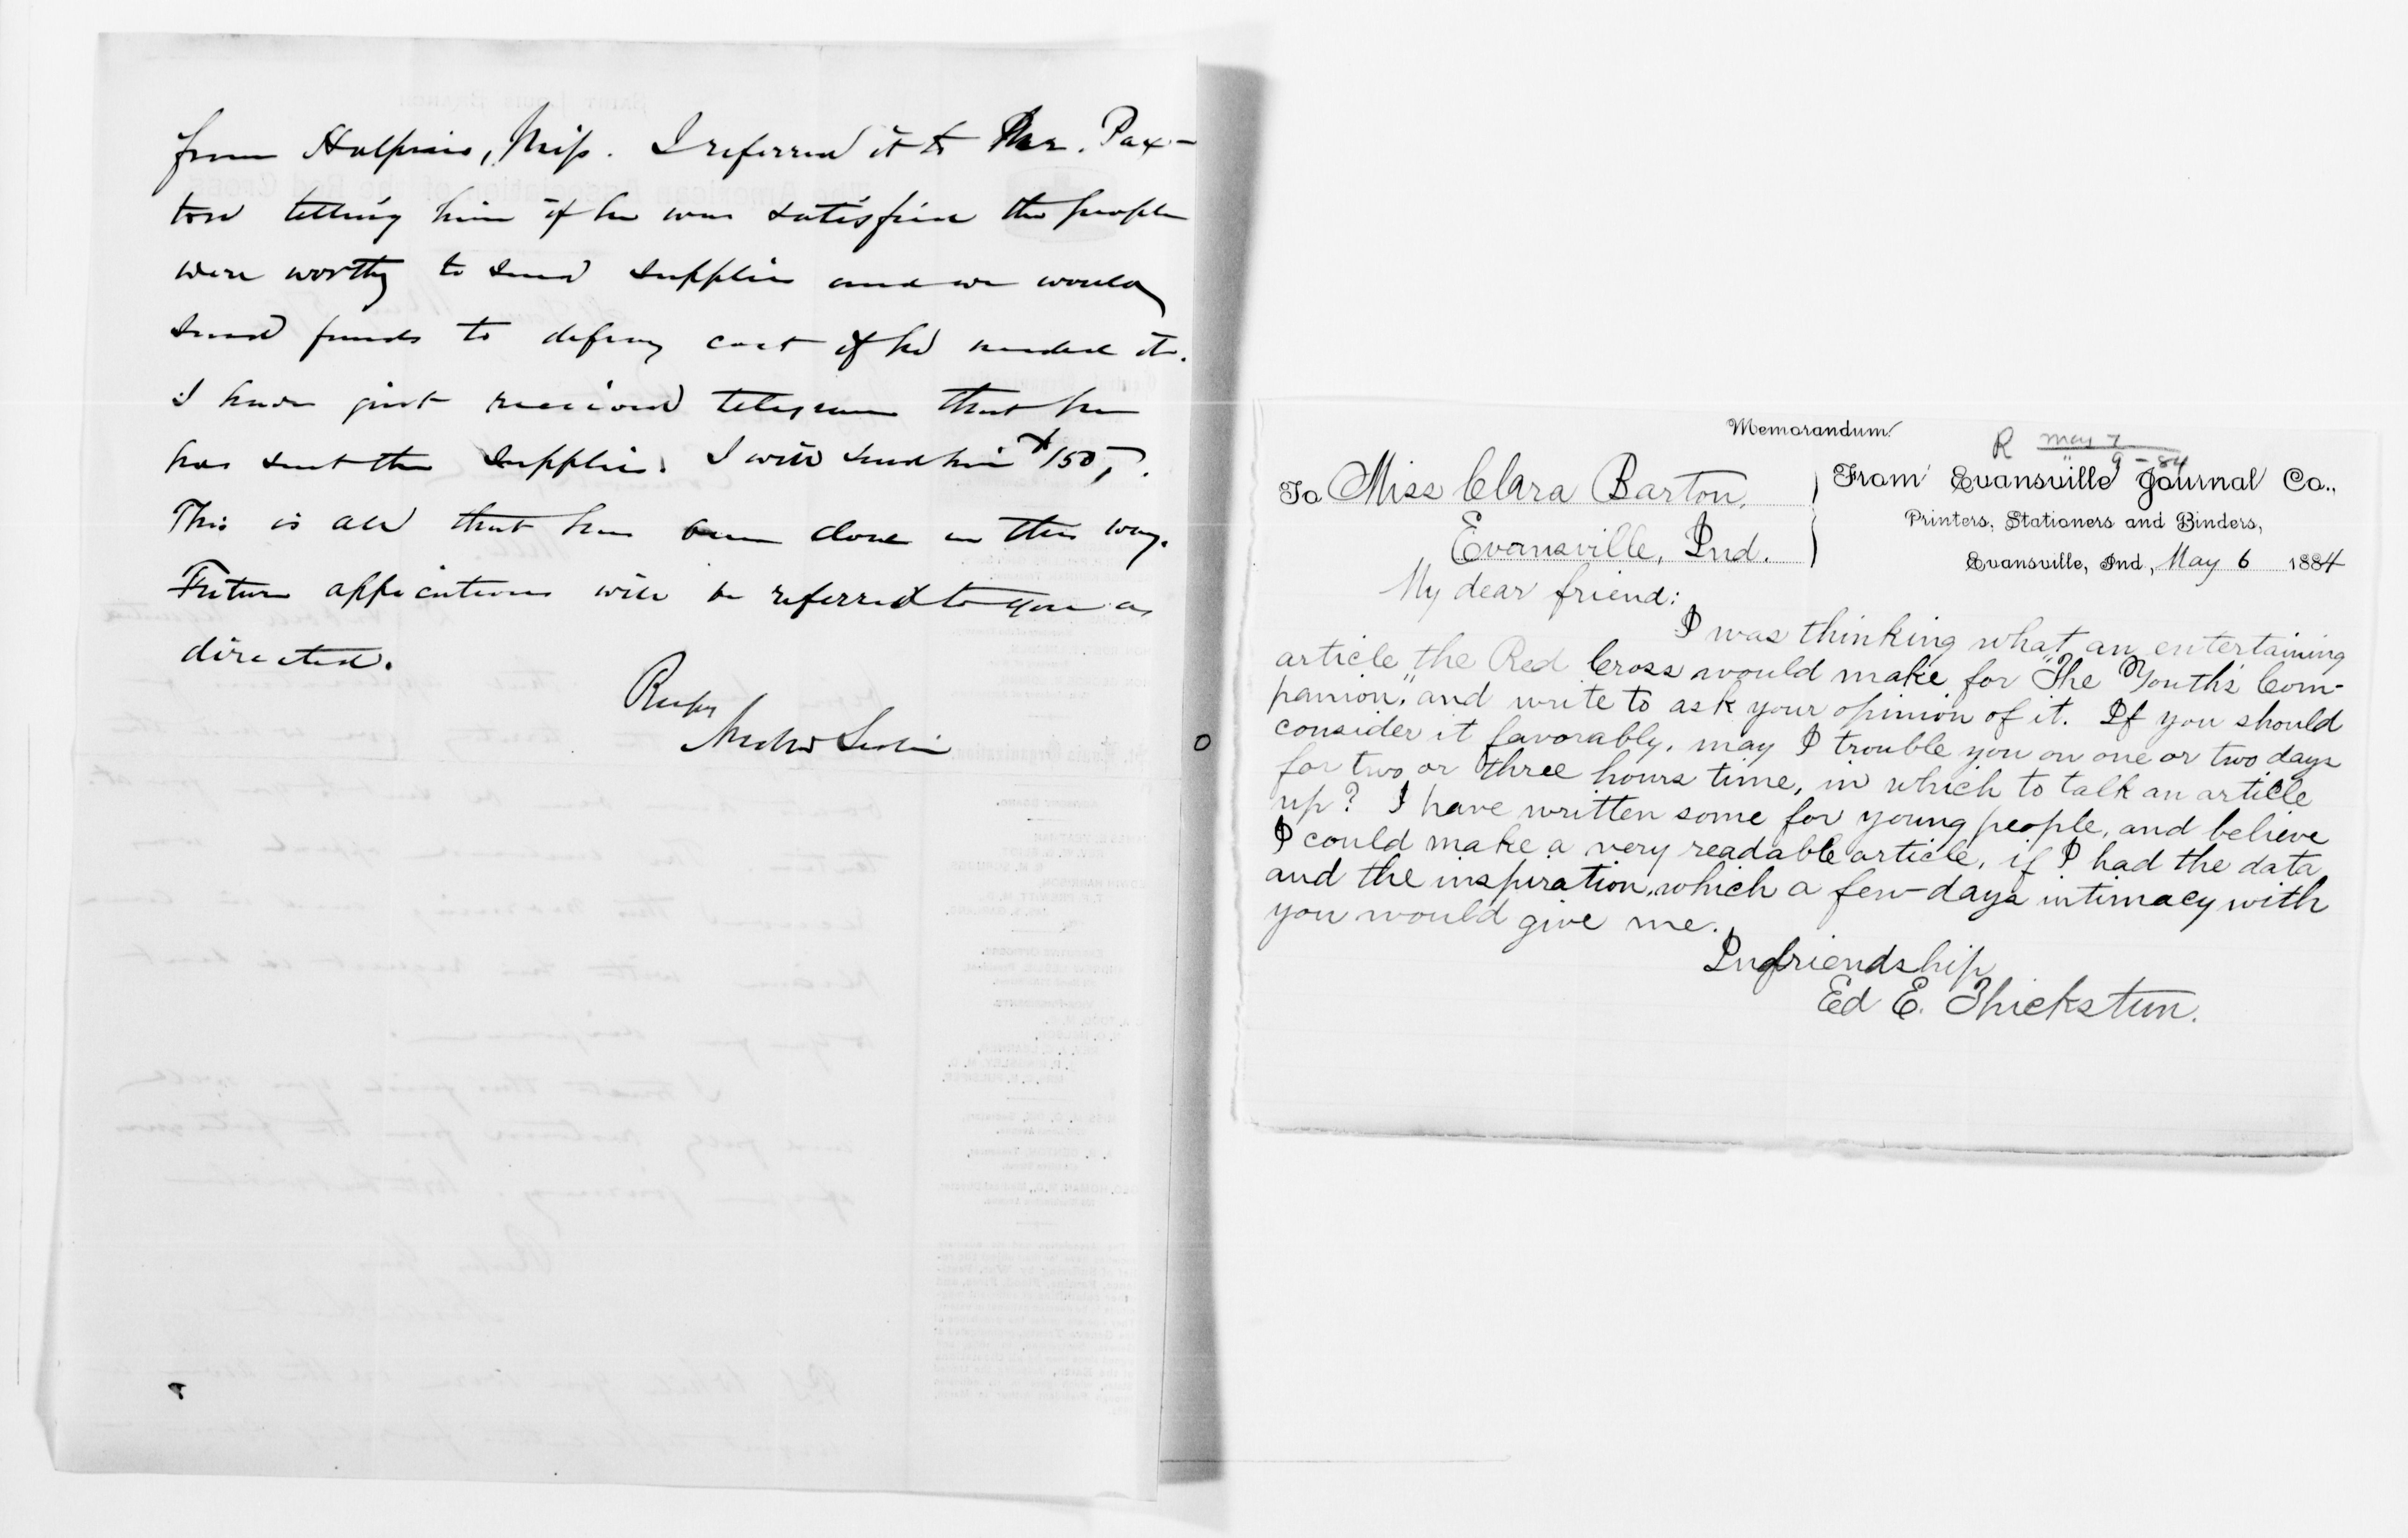 from Halpins, Miss. I referred it to Mr. Pax-
ton telling him if he was satisfied the people
were worthy to send supplies and we would
send funds to defray cost if he needed it.
I have just received telegram that he
has sent the supplies. I will send him $150,
This is all that has been done in this way.
Future applications will be referred to you as
directed.
Memorandum
R May 7
9-84
To Miss Clara Barton,
Evansville, Ind.
From Evansville Journal Co.,
Printers, Stationers and Binders,
Evansville, Ind., May 6 1884
My dear friend:
I was thinking what an entertaining
article the Red Cross would make for "The Youth's Com-
panion," and write to ask your opinion of it. If you should
consider it favorably, may I trouble you on one or two days
for two or three hours time, in which to talk an article
up? I have written some for young people, and believe
I could make a very readable article, if I had the data
and the inspiration, which a few days intimacy with
you would give me.
In friendship
Ed E. Thickstun.